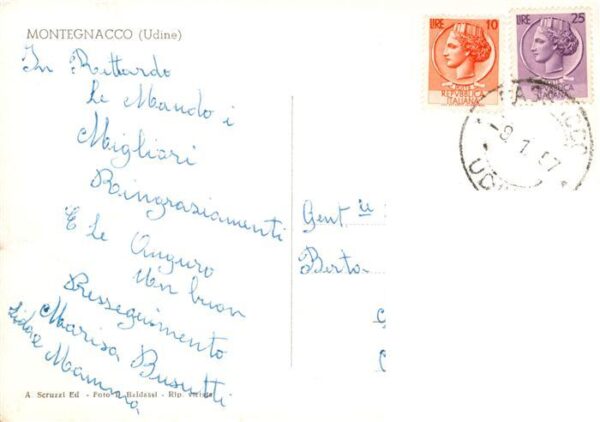 MONTEGNACCO (Udine)
In Rittardo
Le Mando i
Migliori
Ringrasiamenti
E Le Anguro
Un buon
Presseguimento
Marisa Busutti
e Mamma
A Scruzzi Ed - Foto Baldassi - Rip. vietata
LIRE 10
REPVBBLICA
ITALIANA
LIRE 25
ITALIANA
-8.1.67
UDI
Gent ie
Berto